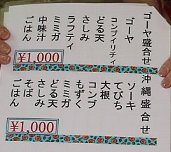 ゴーヤ盛合せ
ゴーヤ
コンブイリチィ
どる天
さしみ
ラフティ
ミミガ
中味汁
ごはん
¥1,000
沖縄盛合せ
ソーキ
てびち
大根
コンブ
もずく
ミミガ
さしみ
どる天
そば
ごはん
¥1,000